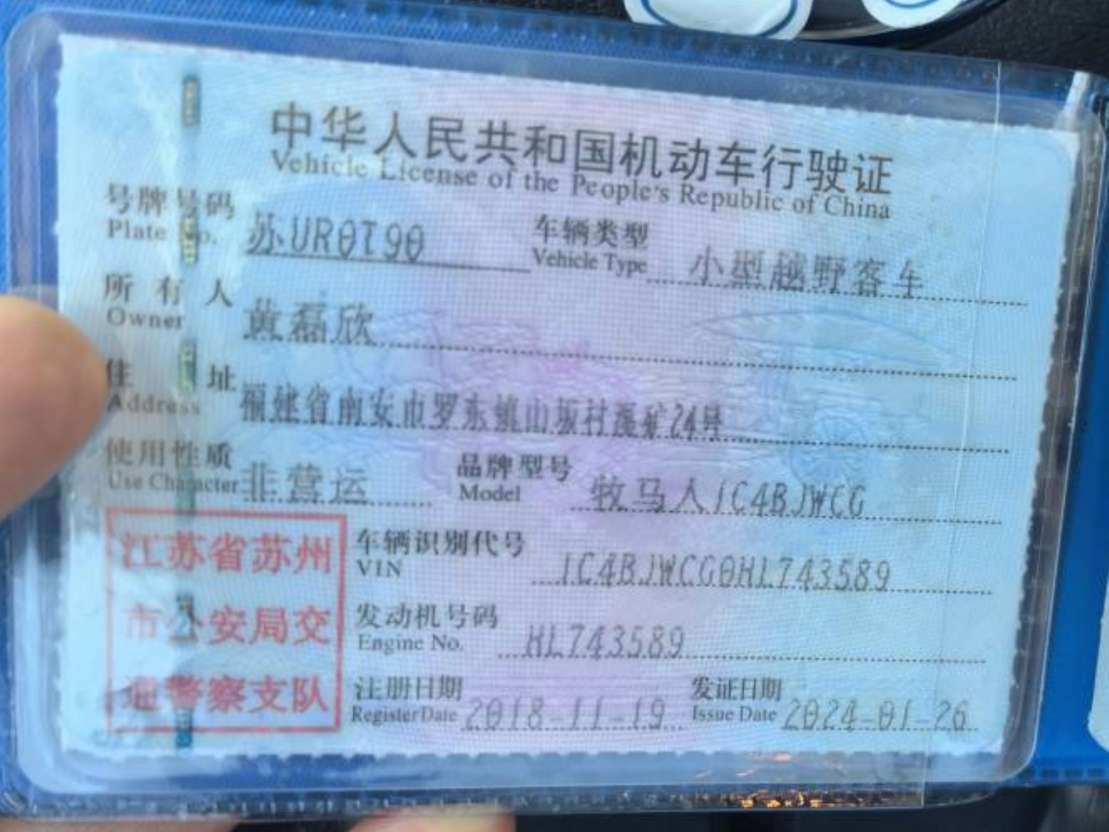 中华人民共和国机动车行驶证
Vehicle License of the People's Republic of China
号牌号码 苏UR0T90 车辆类型 小型越野客车
Plate No. Vehicle Type
所有人 黄磊欣
Owner
住址 福建省南安市罗东镇山坂村煤矿24号
Address
使用性质 非营运 品牌型号 牧马人1C4BJWCG
Use Character Model
江苏省苏州
市公安局交
通警察支队
车辆识别代号 1C4BJWCG0HL743589
VIN
发动机号码 HL743589
Engine No.
注册日期 2018-11-19 发证日期 2024-01-26
Register Date Issue Date